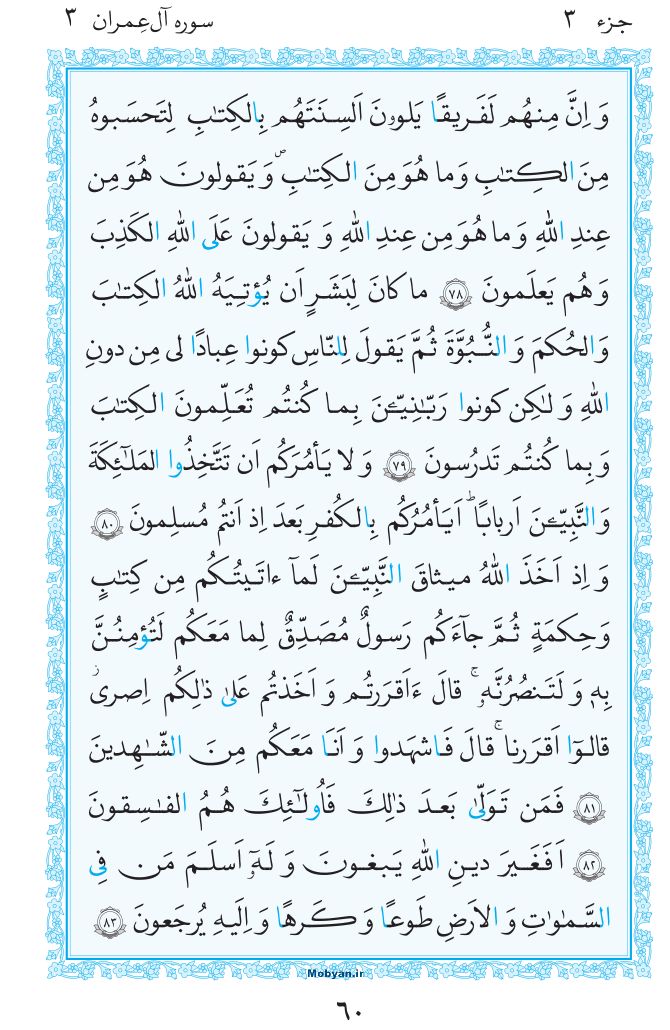 جزء ٣
سوره آل‌عِمران ٣
وَ اِنَّ مِنهُم لَفَريقًا يَلوۥنَ اَلسِنَتَهُم بِالكِتٰبِ لِتَحسَبوهُ
مِنَ الكِتٰبِ وَ ما هُوَ مِنَ الكِتٰبِ ۖ وَ يَقولونَ هُوَ مِن
عِندِ اللهِ وَ ما هُوَ مِن عِندِ اللهِ وَ يَقولونَ عَلَى اللهِ الكَذِبَ
وَ هُم يَعلَمونَ ﴿٧٨﴾ ما كانَ لِبَشَرٍ اَن يُؤتِيَهُ اللهُ الكِتٰبَ
وَ الحُكمَ وَ النُّبُوَّةَ ثُمَّ يَقولَ لِلنّاسِ كونوا عِبادًا لى مِن دونِ
اللهِ وَ لٰكِن كونوا رَبّٰنِيّـۧنَ بِما كُنتُم تُعَلِّمونَ الكِتٰبَ
وَ بِما كُنتُم تَدرُسونَ ﴿٧٩﴾ وَ لا يَأمُرَكُم اَن تَتَّخِذُوا المَلٰۤئِكَةَ
وَ النَّبِيّـۧنَ اَربابًا ۗ اَيَأمُرُكُم بِالكُفرِ بَعدَ اِذ اَنتُم مُسلِمونَ ﴿٨٠﴾
وَ اِذ اَخَذَ اللهُ ميثاقَ النَّبِيّـۧنَ لَماۤ ءاتَيتُكُم مِن كِتٰبٍ
وَ حِكمَةٍ ثُمَّ جاۤءَكُم رَسولٌ مُصَدِّقٌ لِما مَعَكُم لَتُؤمِنُنَّ
بِهٖ وَ لَتَنصُرُنَّهٗ ۚ قالَ ءَاَقرَرتُم وَ اَخَذتُم عَلىٰ ذٰلِكُم اِصرى ۖ
قالوۤا اَقرَرنا ۚ قالَ فَاشهَدوا وَ اَنَا مَعَكُم مِنَ الشّٰهِدينَ
﴿٨١﴾ فَمَن تَوَلّىٰ بَعدَ ذٰلِكَ فَاُولٰۤئِكَ هُمُ الفٰسِقونَ
﴿٨٢﴾ اَفَغَيرَ دينِ اللهِ يَبغونَ وَ لَهٗۤ اَسلَمَ مَن فِى
السَّمٰوٰتِ وَ الاَرضِ طَوعًا وَ كَرهًا وَ اِلَيهِ يُرجَعونَ ﴿٨٣﴾
Mobyan.ir
٦٠